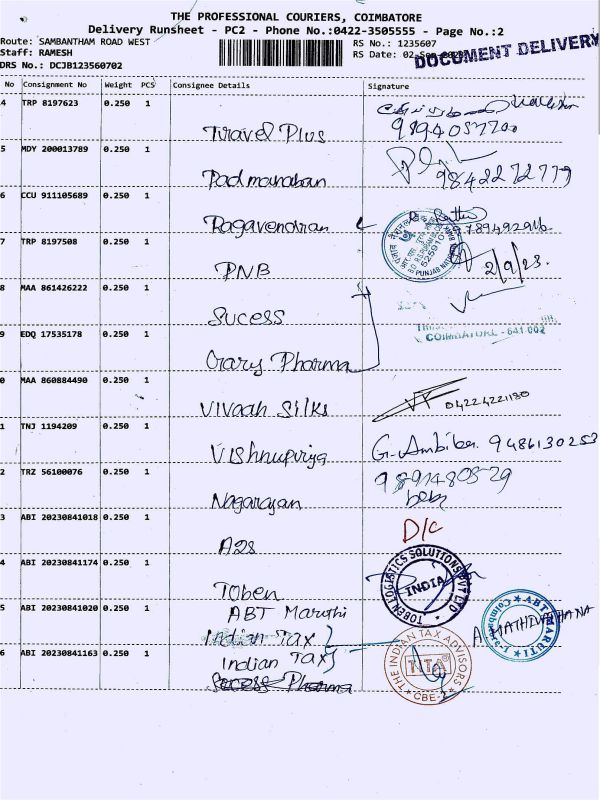 THE PROFESSIONAL COURIERS, COIMBATORE
Delivery Runsheet - PC2 - Phone No.:0422-3505555 - Page No.:2
Route: SAMBANTHAM ROAD WEST
RS No.: 1235607
Staff: RAMESH
RS Date: 02-Sep
DOCUMENT DELIVERY
DRS No.: DCJB123560702
No Consignment No Weight PCS Consignee Details Signature
4 TRP 8197623 0.250 1
Travel Plus 9894057700
5 MDY 200013789 0.250 1
Padmanaban 9842272779
6 CCU 911105689 0.250 1
Ragavendran 9789492916
7 TRP 8197508 0.250 1
PNB 2/9/23.
PUNJAB NATIONAL
8 MAA 861426222 0.250 1
Sucess
9 EDQ 17535178 0.250 1
COIMBATORE - 641 002
Gary Pharma
0 MAA 860884490 0.250 1
Vivaah Silks 04224221180
1 TNJ 1194209 0.250 1
Vishnupriya G. Ambika 9486130253
2 TRZ 56100076 0.250 1
Nagarajan 9891480529
3 ABI 20230841018 0.250 1
A2S D/C
4 ABI 20230841174 0.250 1
Toben
TOBEN LOGISTICS SOLUTIONS PVT LTD
INDIA
5 ABI 20230841020 0.250 1
ABT Maruthi
ABT MARUTI
Indian Tax
A. MATHIVATHANA
6 ABI 20230841163 0.250 1
Indian Tax
THE INDIAN TAX ADVISORS
TITA
CBE-2
Sucess Pharma